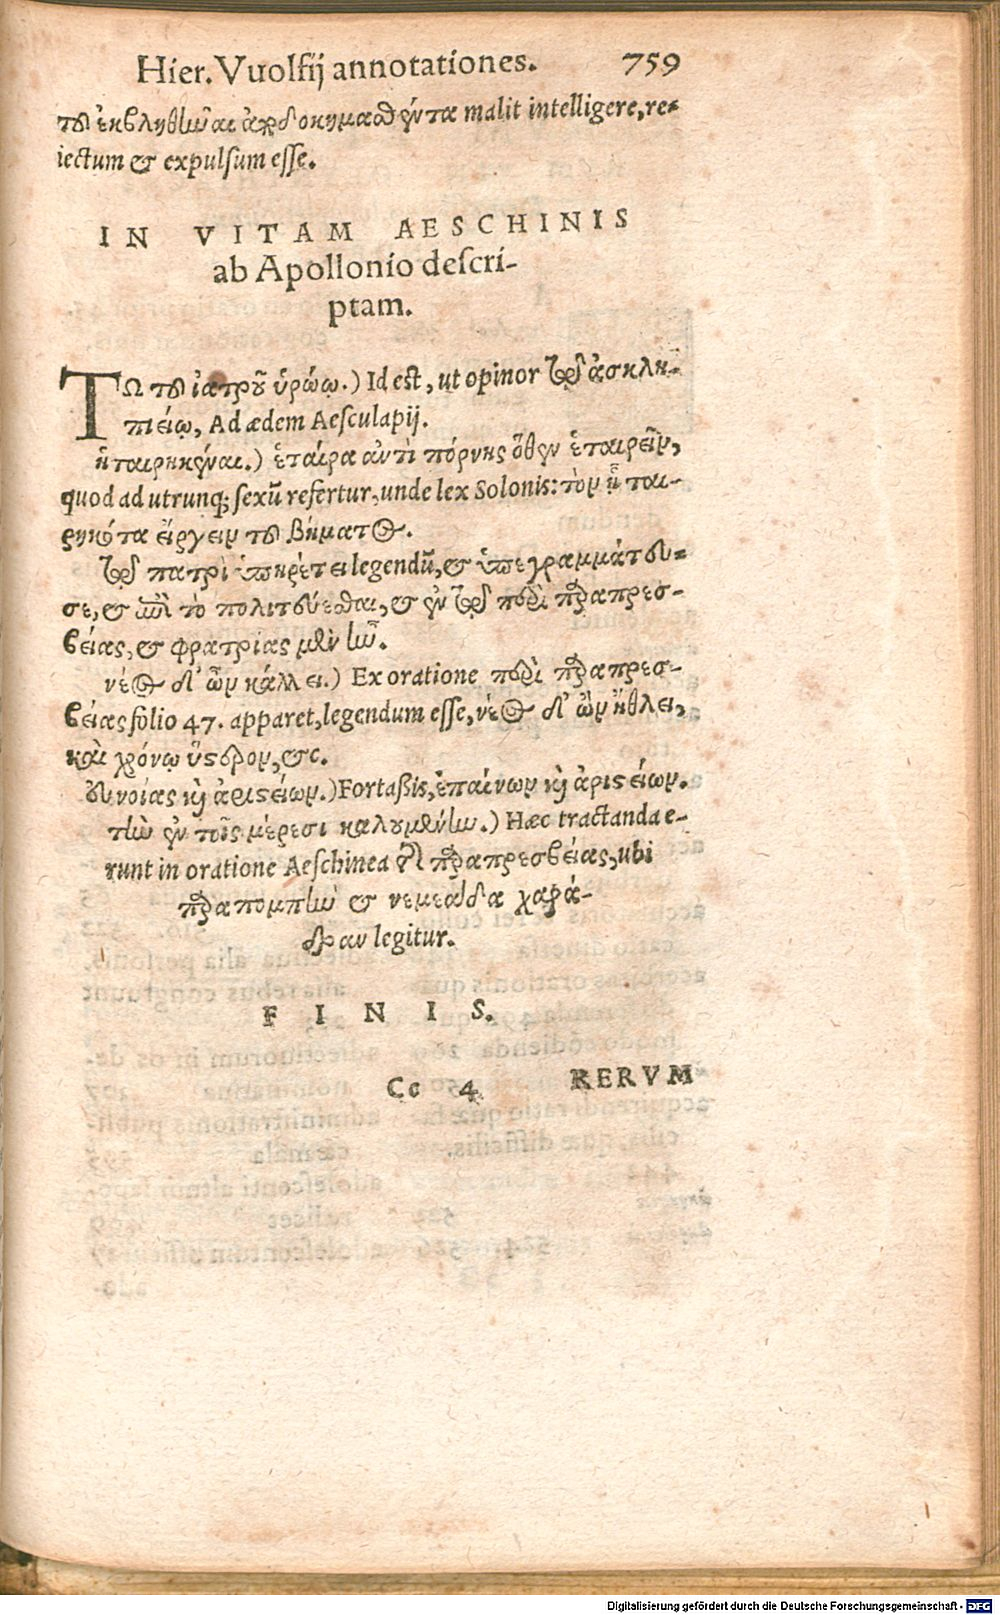 Hier. Vuolfij annotationes. 759
τοῦ ἐκβληθῆναι malit intelligere, re-
iectum & expulsum esse.
IN VITAM AESCHINIS
ab Apollonio descri-
ptam.
ΤΩ τοῦ ἰατροῦ ἡρώῳ.) Id est, ut opinor τῷ ἀσκλη-
πιείῳ, Ad ædem Aesculapij.
ἡταιρηκέναι.) ἑταίρα ἀντὶ πόρνης ὅθεν ἑταιρεῖν,
quod ad utrunq; sexū refertur, unde lex Solonis: τὸν ἡται-
ρηκότα εἴργειν τοῦ βήματος.
τῷ πατρὶ ὑπηρέτει legendū, & ὑπεγραμμάτευ-
σε, & τὸ πολιτεύεσθαι, & ἐν τῷ περὶ παραπρεσ-
βείας, & φρατρίας μὲν ἦν.
νέος δι' ὧν κάλλει.) Ex oratione περὶ παραπρεσ-
βείας folio 47. apparet, legendum esse, νέος δι' ὧν ἤθλει,
καὶ χρόνῳ ὕστερον, &c.
εὐνοίας καὶ ἀριστείων.) Fortaßis, ἐπαίνων καὶ ἀριστείων.
τὴν ἐν τοῖς μέρεσι καλουμένην.) Hæc tractanda e-
runt in oratione Aeschinea περὶ παραπρεσβείας, ubi
παραπομπὴν & νεμεάδα χαρά-
δραν legitur.
FINIS.
Cc 4 RERVM
Digitalisierung gefördert durch die Deutsche Forschungsgemeinschaft - DFG